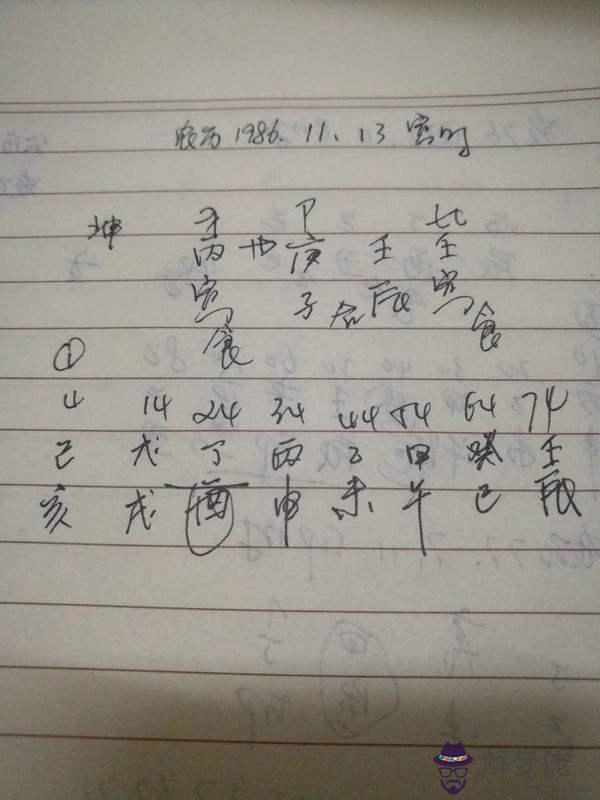 农历1986.11.13 寅时
才 P 比
坤 丙 庚 壬 壬
寅 子 合 辰 寅
食 食
①
4 14 24 34 44 54 64 74
己 戊 丁 丙 乙 甲 癸 壬
亥 戌 酉 申 未 午 巳 辰
解梦佬